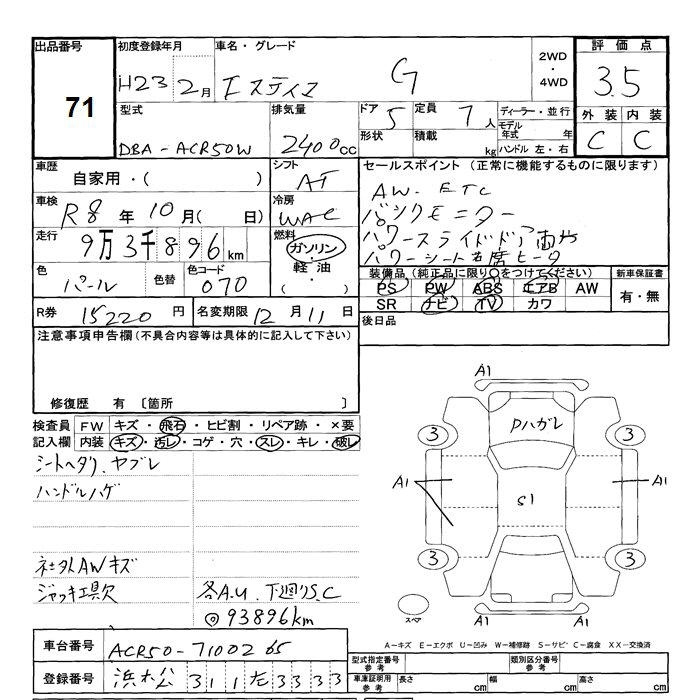 出品番号 初度登録年月 車名・グレード 2WD・4WD 評価点
71 H23 2月 エスティマ G 3.5
型式 排気量 ドア 5 定員 7人 ディーラー・並行 外装 内装
形状 積載 kg モデル年式 年 C C
DBA-ACR50W 2400cc ハンドル 左・右
車歴 自家用・( ) シフト AT セールスポイント (正常に機能するものに限ります)
車検 R8年10月( 日) 冷房 WAC AW. ETC
走行 9万3千896km 燃料 ガソリン・軽油 ・( )
パワースライドドア両
パワーシート
色 パール 色替 色コード 070
装備品 (純正品に限り○をつけてください) 新車保証書
PS PW ABS エアB AW 有・無
SR ナビ TV カワ
R券 15220円 名変期限 12月11日 後日品
注意事項申告欄(不具合内容等は具体的に記入して下さい)
修復歴 有 〔箇所 〕
検査員 FW キズ・飛石・ヒビ割・リペア跡・×要
記入欄 内装 キズ・汚レ・コゲ・穴・スレ・キレ・破レ
シートヘタリ、ヤブレ
ハンドルハゲ
社外AWキズ
ジャッキ工具欠 各A.U. 下廻りS.C
◎93896km
A1
Pハガレ
3 3
A1 S1 A1
3 3
スペア
A1
A-キズ E-エクボ U-凹み W-補修跡 S-サビ C-腐食 XX-交換済
車台番号 ACR50-7100265
型式指定番号 参考 類別区分番号 参考
登録番号 浜松 311 た 3333
車庫証明用 参考 長さ cm 幅 cm 高さ cm